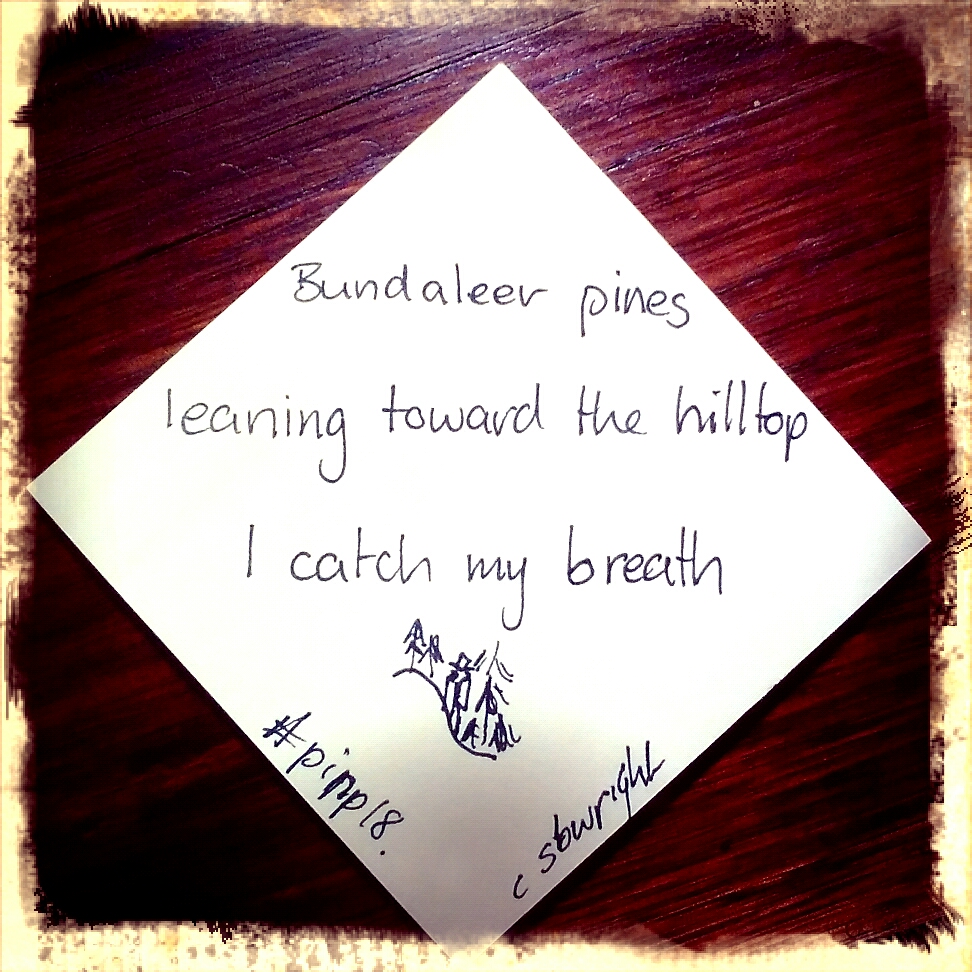 Bundaleer pines
leaning toward the hilltop
I catch my breath
#pimp18.
c sbwright